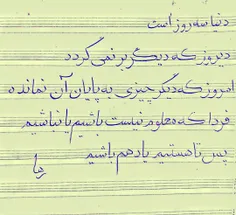 دنیا سه روز است
دیروز که دیگر بر نمی گردد
امروز که دگر چیزی به پایان آن نمانده
فردا که معلوم نیست باشیم یا نباشیم
پس تا هستیم یاد هم باشیم
رضا